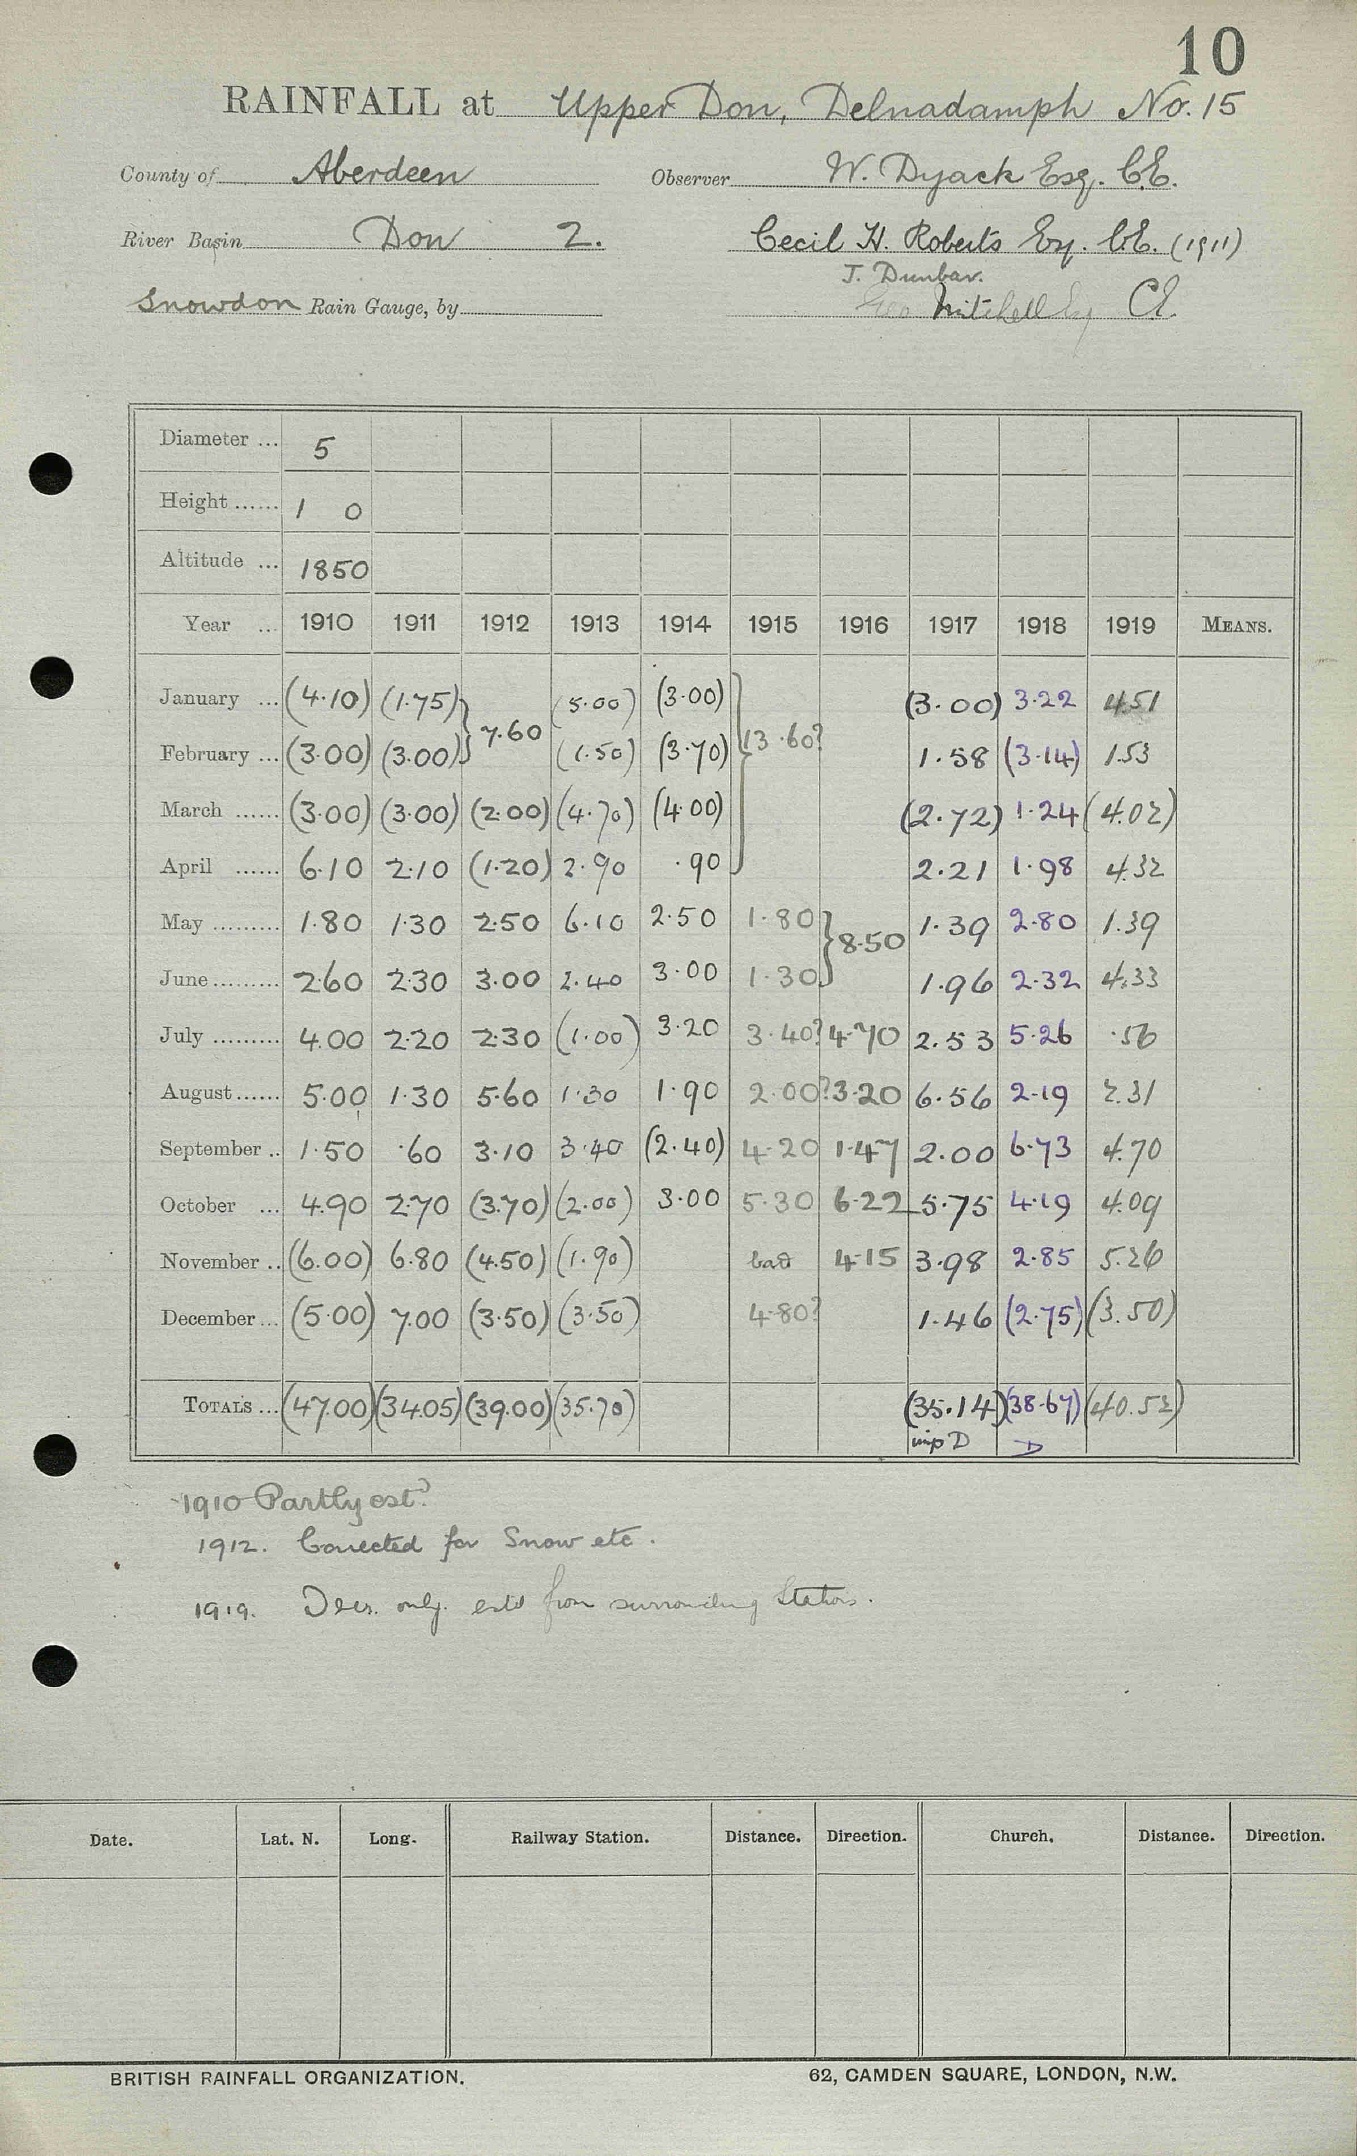 10
RAINFALL at Upper Don, Delnadamph No. 15
County of Aberdeen Observer W. Dyack Esq. C.E.
River Basin Don 2. Cecil H. Roberts Esq. C.E. (1911)
J. Dunbar.
Snowdon Rain Gauge, by Geo Mitchell Esq CE.
Diameter ... 5
Height ...... 1 0
Altitude ... 1850
Year ... 1910 1911 1912 1913 1914 1915 1916 1917 1918 1919 MEANS.
January ... (4.10) (1.75) } 7.60 (5.00) (3.00) } 13.60? (3.00) 3.22 4.51
February ... (3.00) (3.00) (1.50) (3.70) 1.58 (3.14) 1.53
March ...... (3.00) (3.00) (2.00) (4.70) (4.00) (2.72) 1.24 (4.02)
April ...... 6.10 2.10 (1.20) 2.90 .90 2.21 1.98 4.32
May ......... 1.80 1.30 2.50 6.10 2.50 1.80 } 8.50 1.39 2.80 1.39
June ......... 2.60 2.30 3.00 2.40 3.00 1.30 1.96 2.32 4.33
July ......... 4.00 2.20 2.30 (1.00) 3.20 3.40? 4.70 2.53 5.26 .56
August ...... 5.00 1.30 5.60 1.30 1.90 2.00? 3.20 6.56 2.19 2.31
September .. 1.50 .60 3.10 3.40 (2.40) 4.20 1.47 2.00 6.73 4.70
October ... 4.90 2.70 (3.70) (2.00) 3.00 5.30 6.22 5.75 4.19 4.09
November .. (6.00) 6.80 (4.50) (1.90) bad 4.15 3.98 2.85 5.26
December ... (5.00) 7.00 (3.50) (3.50) 4.80? 1.46 (2.75) (3.50)
TOTALS ... (47.00) (34.05) (39.00) (35.70) (35.14) (38.67) (40.52)
imp D D
1910 Partly est?
1912. Corrected for Snow etc.
1919. Decr. only. estd from surrounding Stations.
Date. Lat. N. Long. Railway Station. Distance. Direction. Church. Distance. Direction.
BRITISH RAINFALL ORGANIZATION. 62, CAMDEN SQUARE, LONDON, N.W.